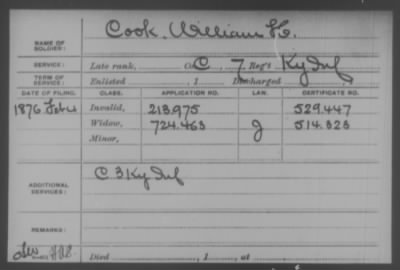 Cook, William H.
NAME OF SOLDIER:
SERVICE: Late rank, Co. C 7 Reg't Ky Inf
TERM OF SERVICE: Enlisted , 1 Discharged , 1
DATE OF FILING. CLASS. APPLICATION NO. LAW. CERTIFICATE NO.
1876 Invalid, 213.975 529.447
Widow, 724.463 J 514.323
Minor,
ADDITIONAL SERVICES: C 3 Ky Inf
REMARKS:
Died , 1 , at